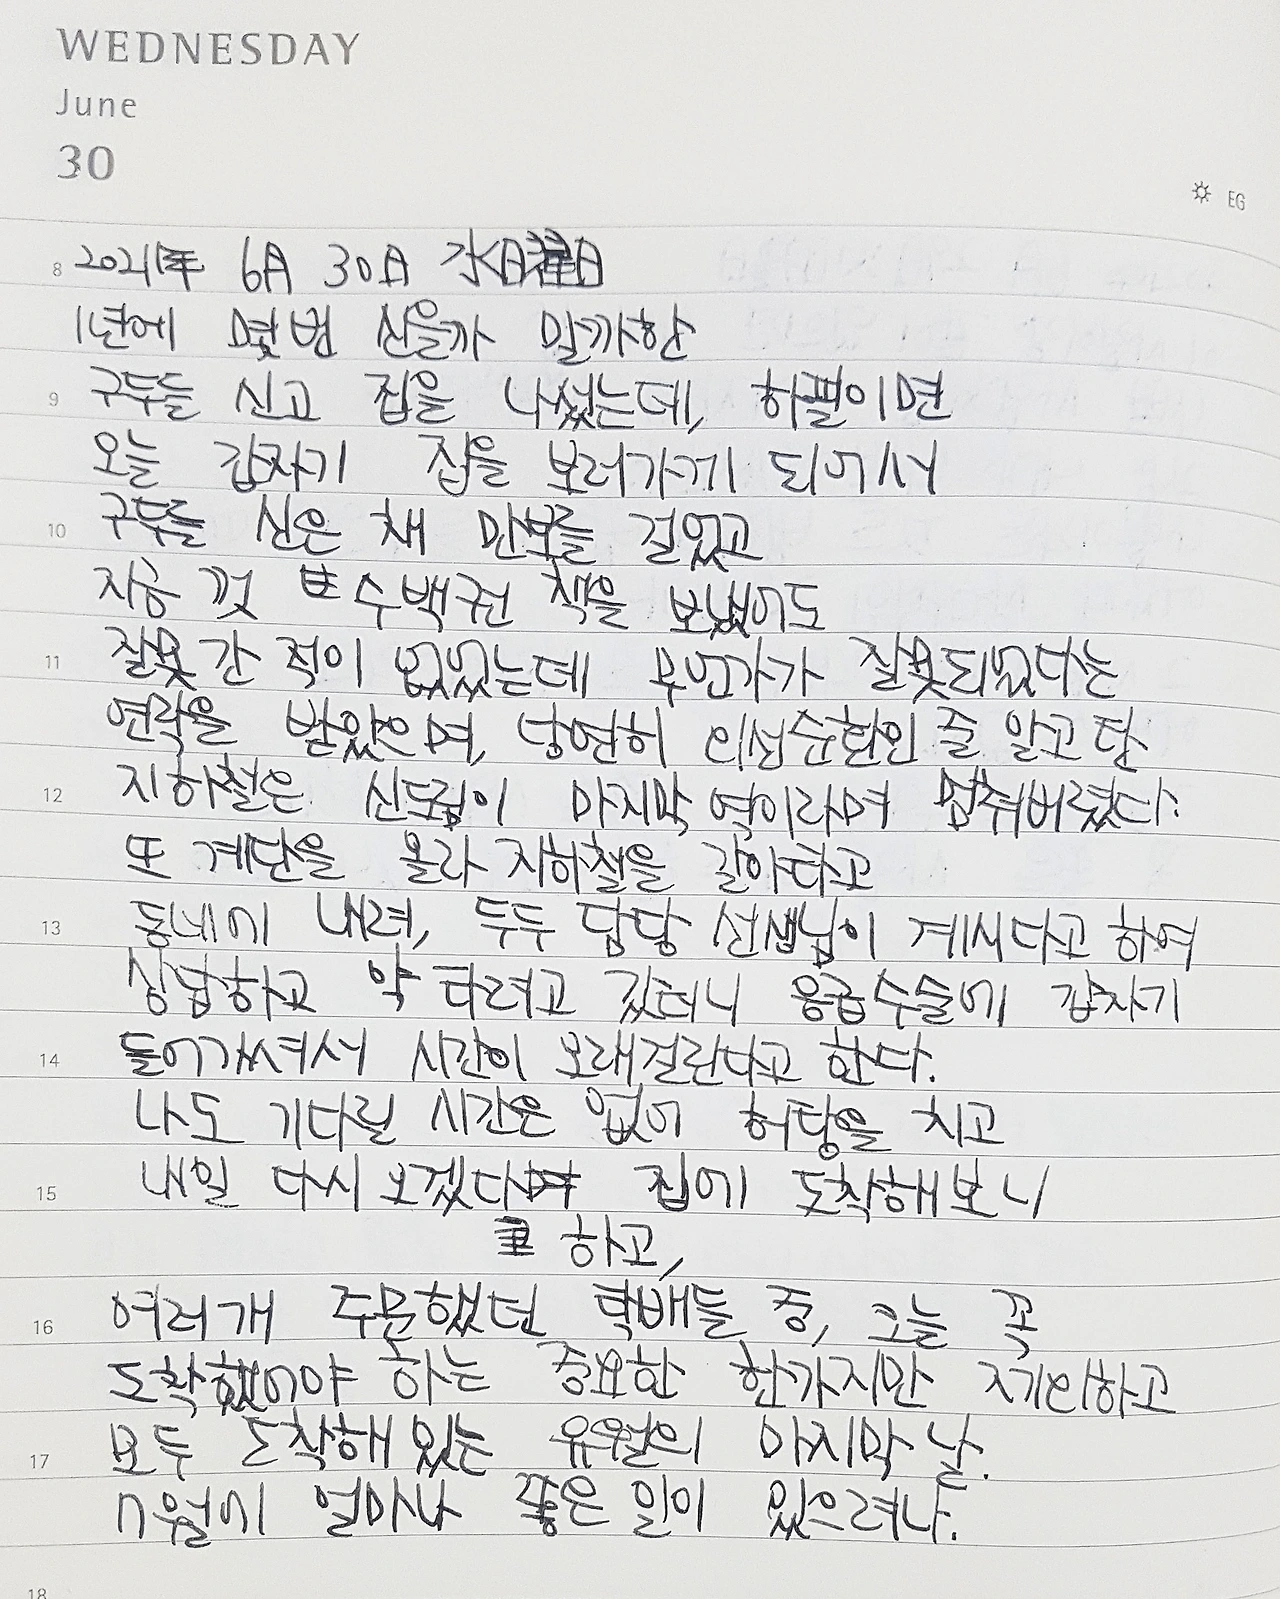 WEDNESDAY
June
30
EG
8 2021年 6月 30日 水曜日
1년에 몇번 신을까 말까한
9 구두를 신고 집을 나섰는데, 하필이면
오늘 갑자기 집을 보러가게 되어서
10 구두를 신은 채 만보를 걸었고
지금 껏 수백권 책을 보냈어도
11 잘못 간 적이 없었는데 무언가가 잘못되었다는
연락을 받았으며, 당연히 2호선순환인 줄 알고 탄
12 지하철은 신도림이 마지막 역이라며 멈춰버렸다.
또 계단을 올라 지하철을 갈아타고
13 동네에 내려, 두두 담당 선생님이 계시다고 하여
상담하고 약 타려고 갔더니 응급수술에 갑자기
14 들어가셔서 시간이 오래걸린다고 한다.
나도 기다릴 시간은 없어 허탕을 치고
15 내일 다시 오겠다 집에 도착해보니
하고,
16 여러개 주문했던 택배들 중, 오늘 꼭
도착했어야 하는 중요한 한가지만 제외하고
17 모두 도착해 있는 유월의 마지막 날.
7월에 얼마나 좋은 일이 있으려나.
18